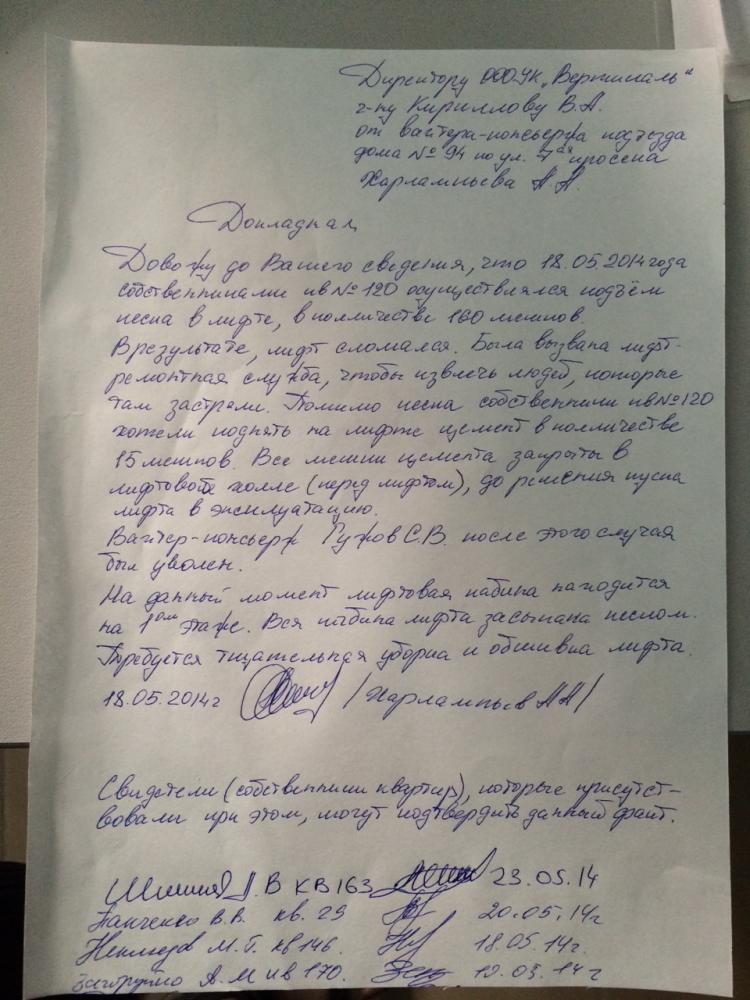 Директору ООО УК „Вертикаль“
г-ну Кириллову В.А.
от вахтера-консьержа подъезда
дома № 94 по ул. 7ая просека
Харлампьева А.А.
Докладная
Довожу до Вашего сведения, что 18.05.2014 года
собственниками кв № 120 осуществлялся подъём
песка в лифте, в колличестве 160 мешков.
В результате, лифт сломался. Была вызвана лифт-
ремонтная служба, чтобы извлечь людей, которые
там застряли. Помимо песка собственники кв № 120
хотели поднять на лифте цемент в колличестве
15 мешков. Все мешки цемента закрыты в
лифтовом холле (перед лифтом), до решения пуска
лифта в эксплуатацию.
Вахтер-консьерж Гужов С.В. после этого случая
был уволен.
На данный момент лифтовая кабина находится
на 1ом этаже. Вся кабина лифта засыпана песком.
Требуется тщательная уборка и обшивка лифта.
18.05.2014 г /Харлампьев АА/
Свидетели (собственники квартир), которые присутст-
вовали при этом, могут подтвердить данный факт.
В КВ 163 23.05.14
Панченко В.В. кв. 29 20.05.14г
М.Г. кв 146. 18.05.14г.
А.М кв 170. 14г